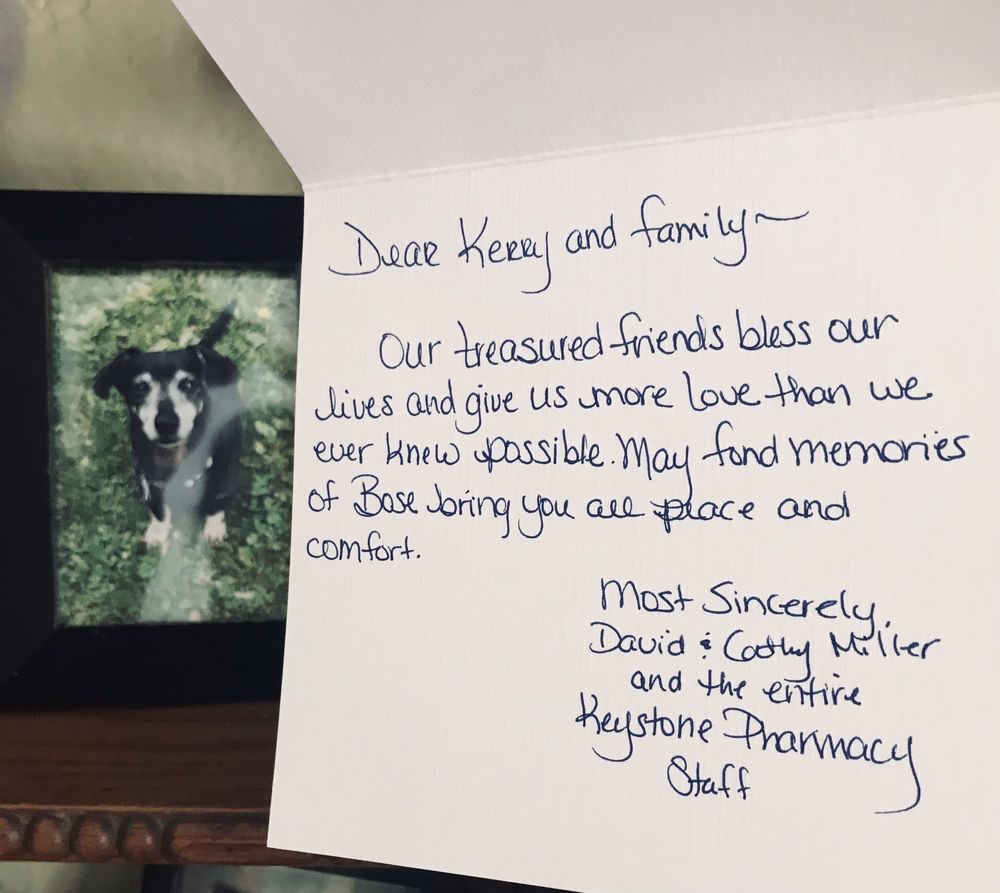 Dear Kerry and family~
Our treasured friends bless our
lives and give us more love than we
ever knew possible. May fond memories
of Base bring you all peace and
comfort.
Most Sincerely,
David & Cathy Miller
and the entire
Keystone Pharmacy
Staff